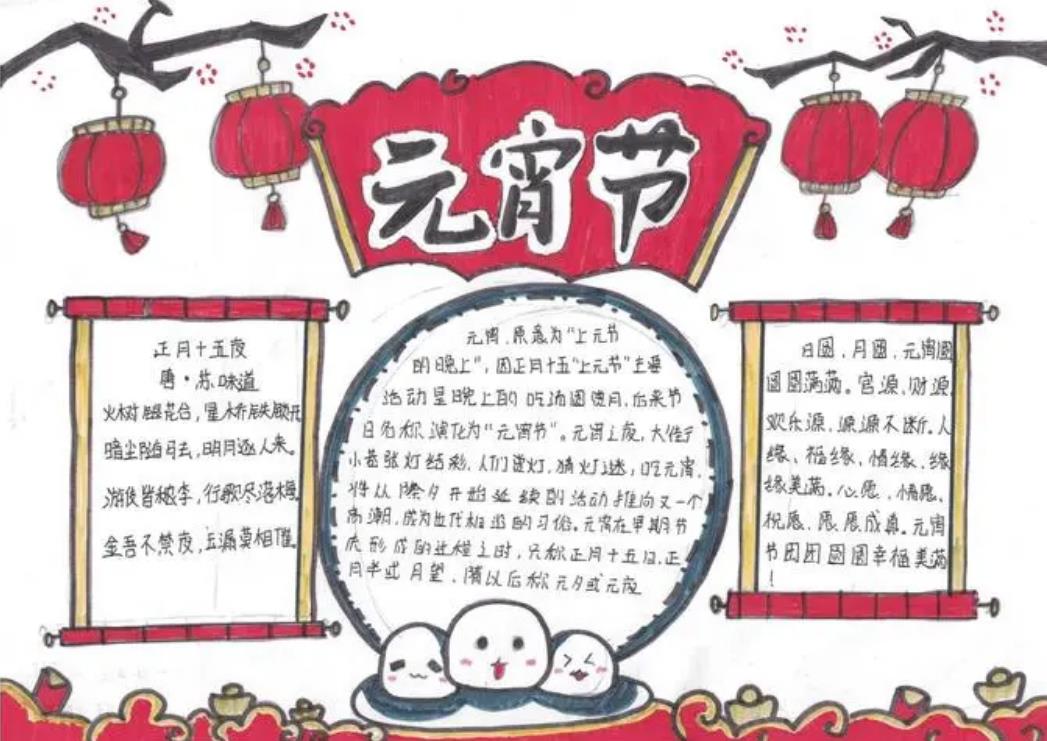 元宵节
正月十五夜
唐·苏味道
火树银花合,星桥铁锁开
暗尘随马去,明月逐人来。
游伎皆秾李,行歌尽落梅
金吾不禁夜,玉漏莫相催。
元宵,原意为“上元节
的晚上”,因正月十五“上元节”主要
活动是晚上的吃汤圆赏月,后来节
日名称演化为“元宵节”。元宵之夜,大街
小巷张灯结彩,人们赏灯,猜灯迷,吃元宵,
将从除夕开始延续的活动推向又一个
高潮,成为世代相沿的习俗。元宵在早期节
庆形成的过程之时,只称正月十五日,正
月半或月望,隋以后称元夕或元夜
日圆,月圆,元宵圆
圆圆满满。官源,财源,
欢乐源,源源不断。人
缘、福缘、情缘、缘
缘美满。心愿,情愿、
祝愿、愿愿成真。元宵
节团团圆圆幸福美满
!